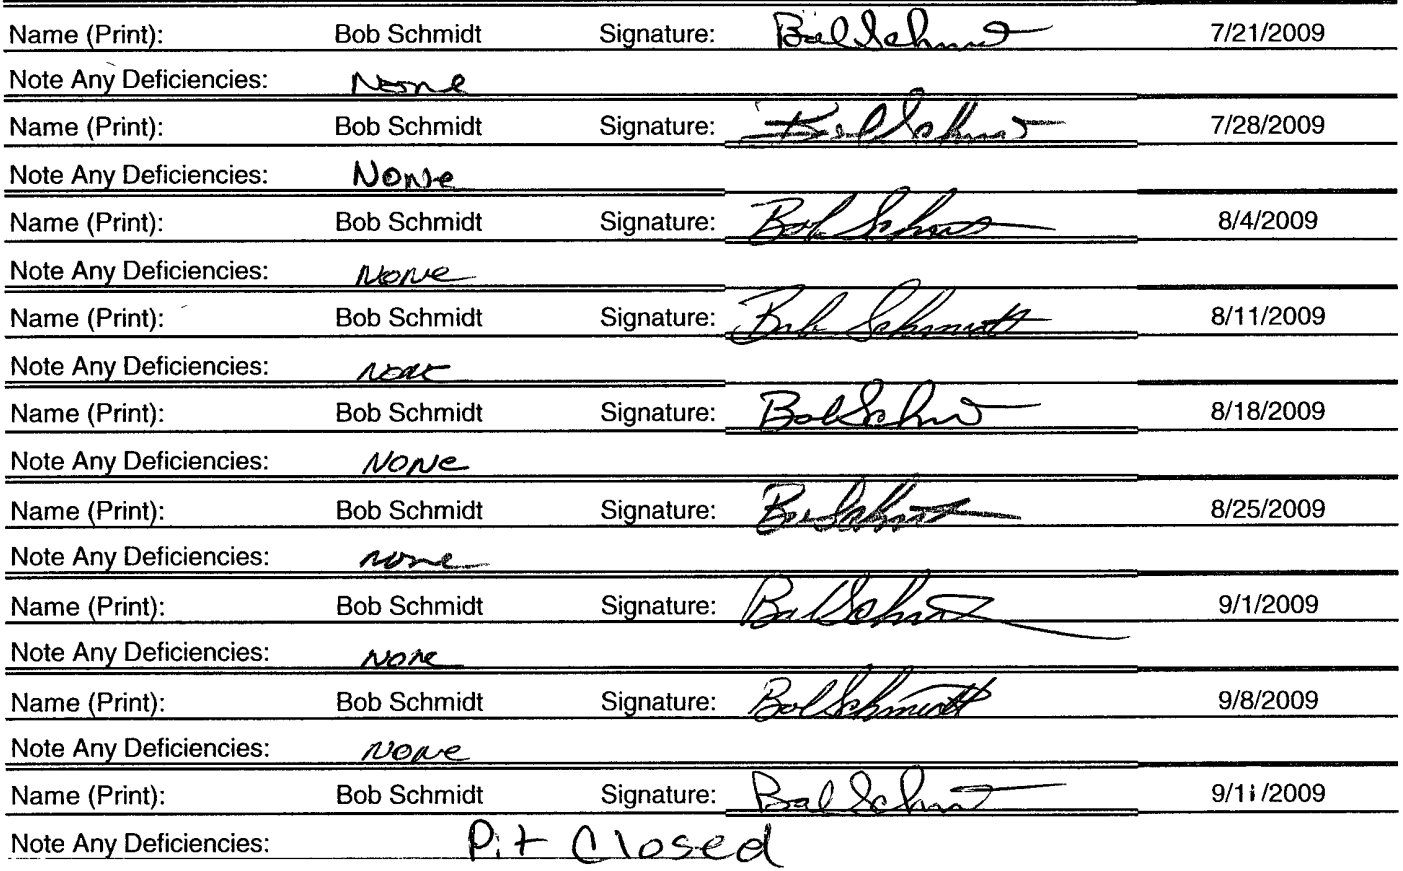 Name (Print): Bob Schmidt Signature: Bob Schmidt 7/21/2009
Note Any Deficiencies: None
Name (Print): Bob Schmidt Signature: Bob Schmidt 7/28/2009
Note Any Deficiencies: None
Name (Print): Bob Schmidt Signature: Bob Schmidt 8/4/2009
Note Any Deficiencies: None
Name (Print): Bob Schmidt Signature: Bob Schmidt 8/11/2009
Note Any Deficiencies: none
Name (Print): Bob Schmidt Signature: Bob Schmidt 8/18/2009
Note Any Deficiencies: None
Name (Print): Bob Schmidt Signature: Bob Schmidt 8/25/2009
Note Any Deficiencies: none
Name (Print): Bob Schmidt Signature: Bob Schmidt 9/1/2009
Note Any Deficiencies: None
Name (Print): Bob Schmidt Signature: Bob Schmidt 9/8/2009
Note Any Deficiencies: None
Name (Print): Bob Schmidt Signature: Bob Schmidt 9/11/2009
Note Any Deficiencies: Pit Closed